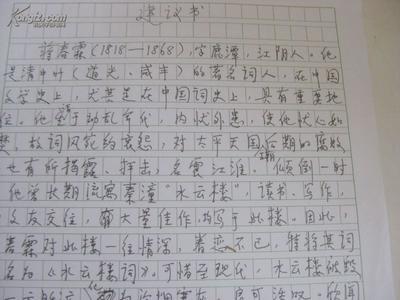 建议书
蒋春霖(1818—1868),字鹿潭,江阴人。他
是清中叶(道光、咸丰)的著名词人,在中国
文学史上,尤其是在中国词史上,具有重要地
位。他 于动乱年代,内忧外患,使他忧心如
焚,故词风苑约哀怨,对太平天国后期的腐败
也有所揭露、抨击,名震江淮,倾倒一时
他曾长期流寓秦潼“水云楼”,读书、写作,
交友交往, 大量佳作,均写于此楼。因此,
春霖对此楼一往情深,眷恋不已,特将其词
名为《水云楼词》。可惜至现代,水云楼破毁
kongfz.com